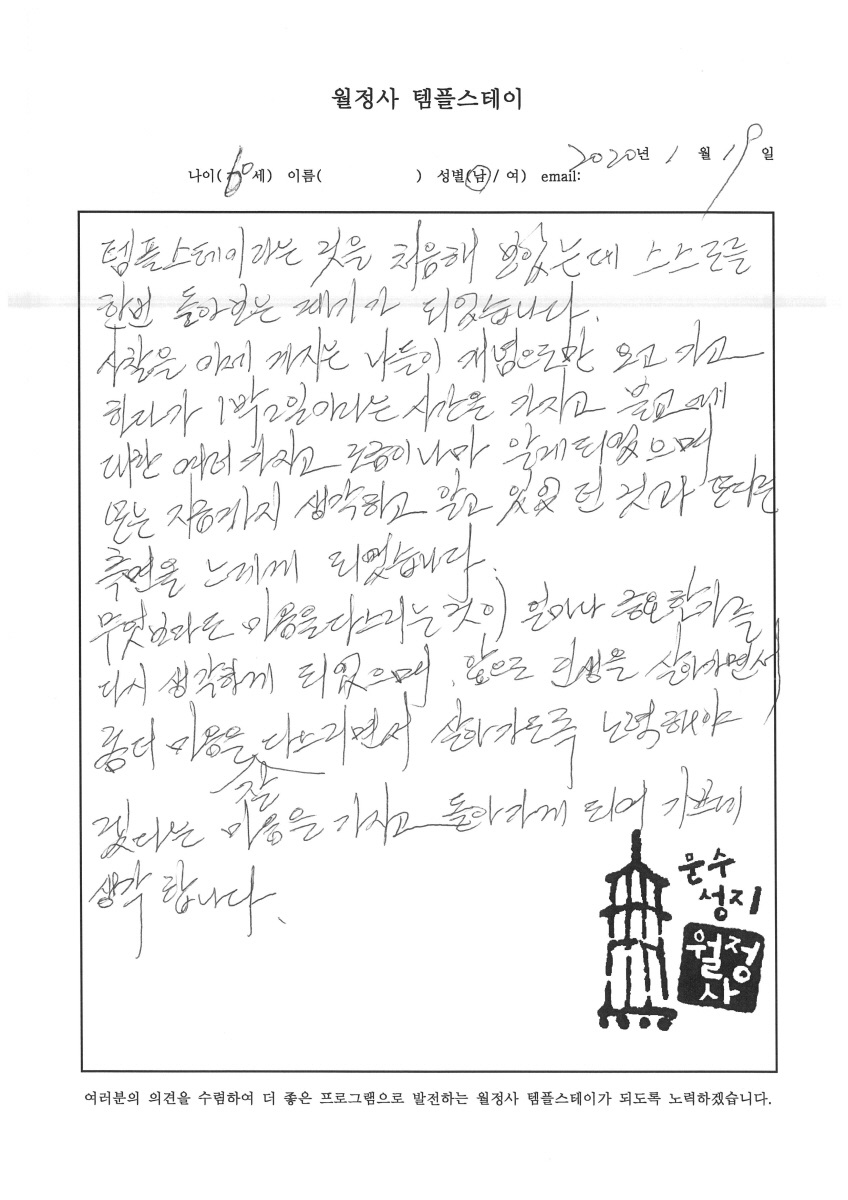 월정사 템플스테이
2020년 1월 19일
나이(60세) 이름( ) 성별(남/여) email:
템플스테이라는 것을 처음해 보았는데 스스로를
한번 돌아보는 계기가 되었습니다.
사찰을 이제 까지는 나들이 개념으로만 오고 가고
하다가 1박2일이라는 시간을 가지고 불교에
대한 여러 가지고 조금이나마 알게되었으며
또는 지금까지 생각하고 알고 있었던 것과 또다른
측면을 느끼게 되었습니다.
무엇보다도 마음을다스리는 것이 얼마나 중요한가를
다시 생각하게 되었으며, 앞으로 인생을 살아가면서
좀더 마음을 잘 다스리면서 살아가도록 노력해야
겠다는 마음을 가지고 돌아가게 되어 기쁘게
생각 합니다.
문수
성지
월정
사
여러분의 의견을 수렴하여 더 좋은 프로그램으로 발전하는 월정사 템플스테이가 되도록 노력하겠습니다.